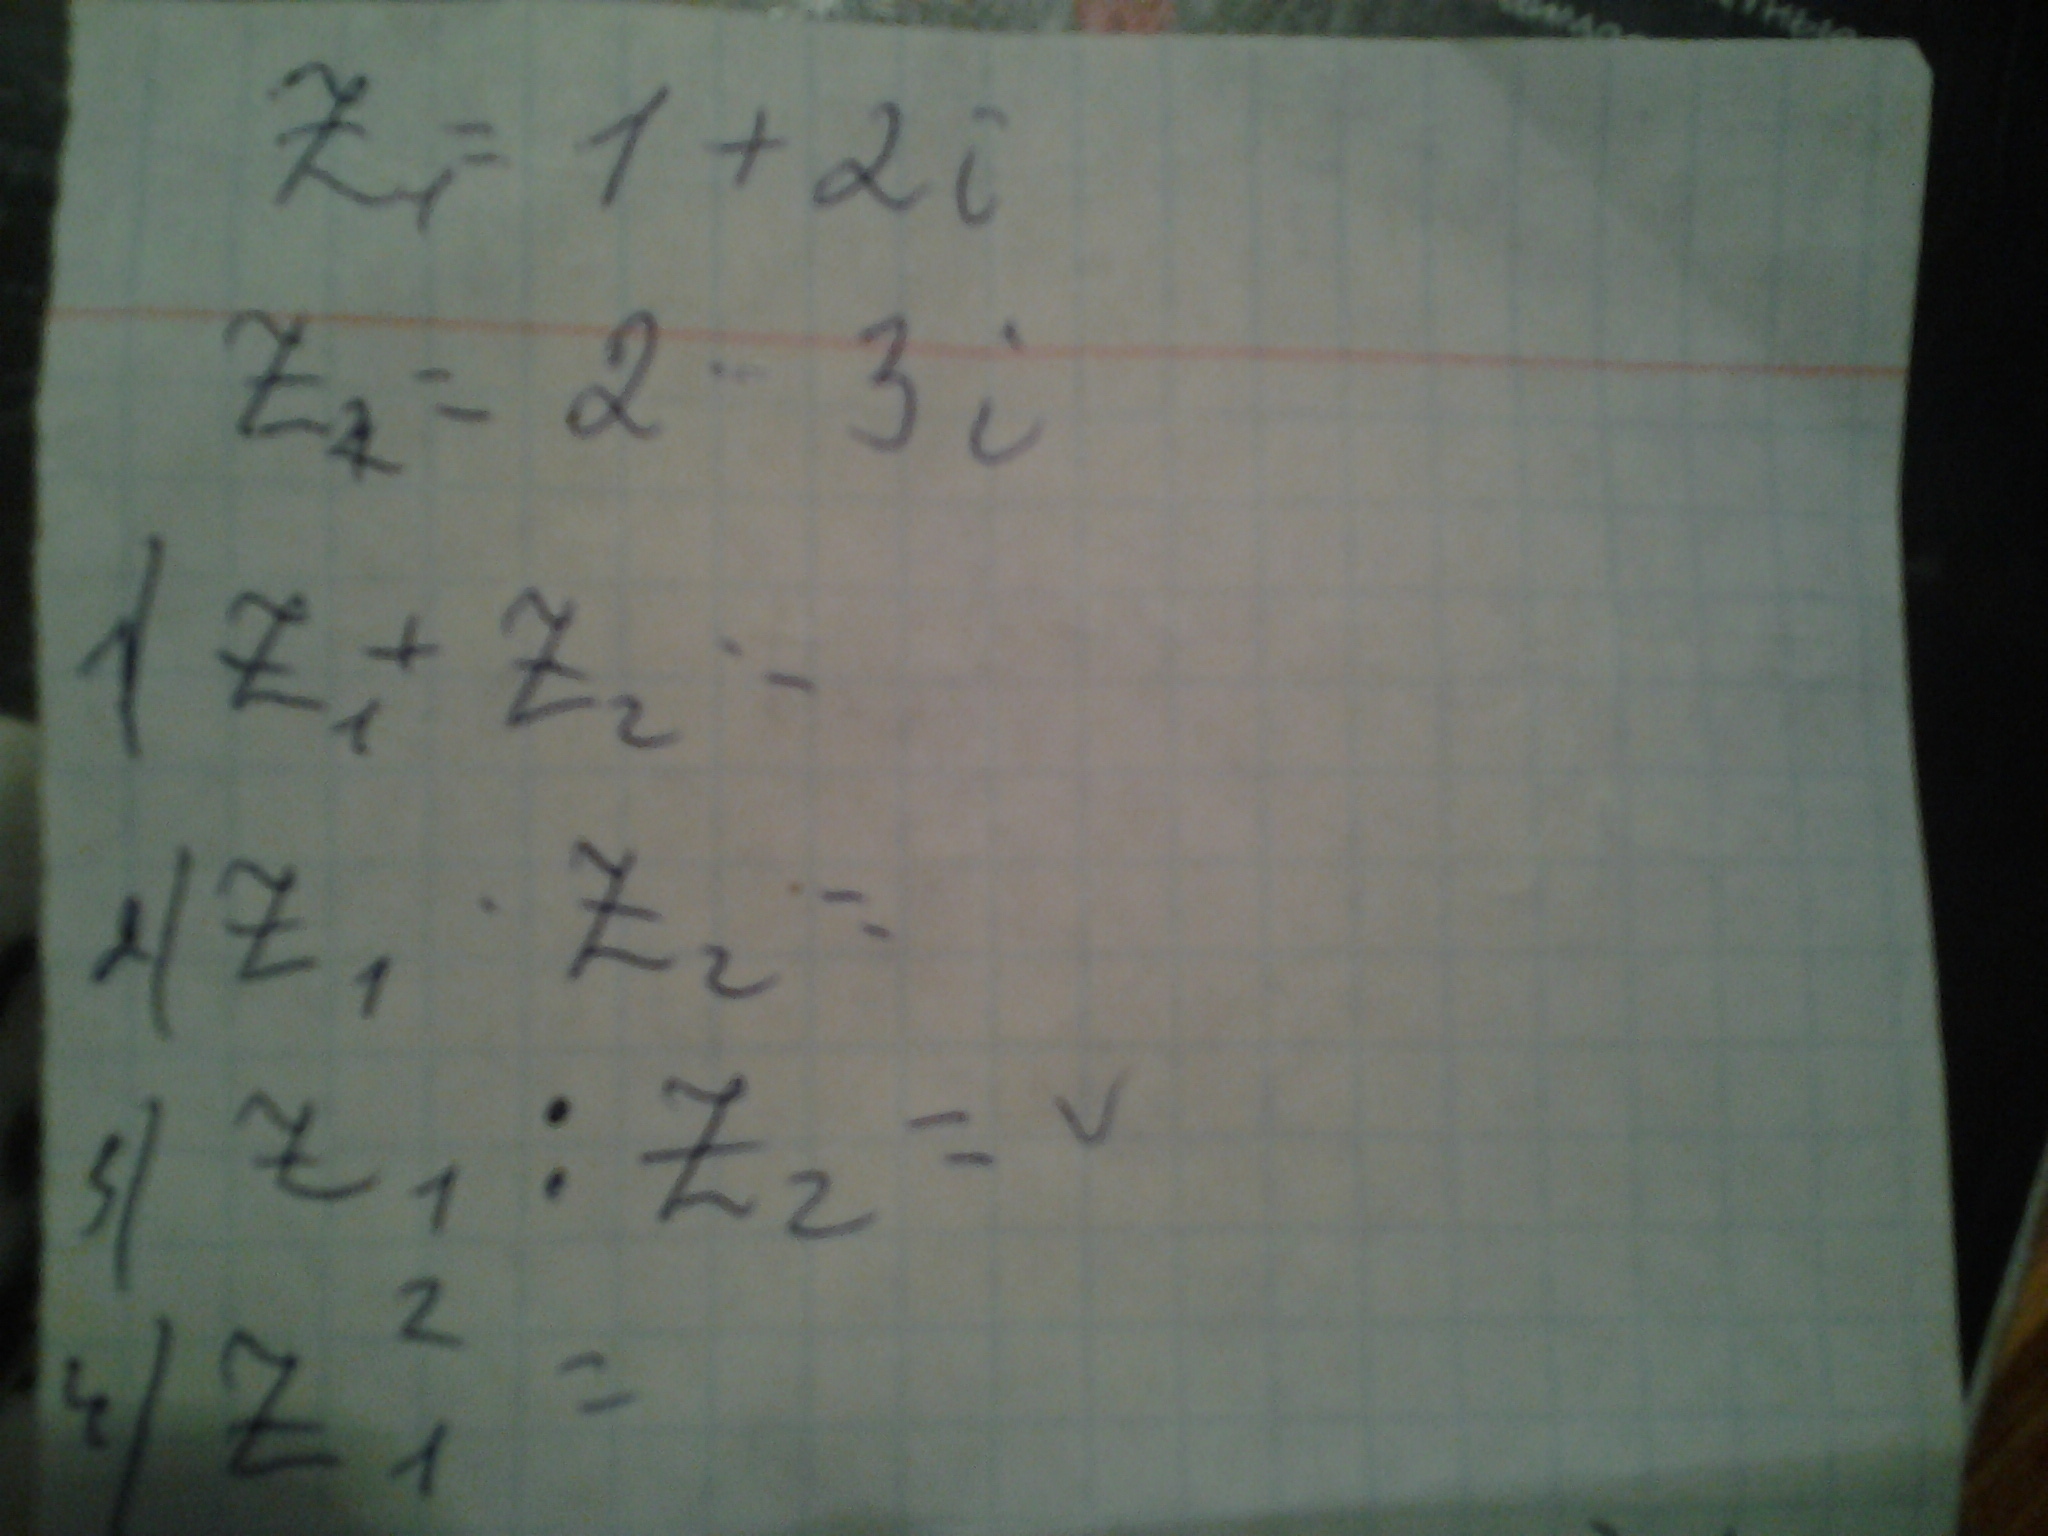 Z₁ = 1 + 2i
Z₂ = 2 - 3i
1) Z₁ + Z₂ =
2) Z₁ · Z₂ =
3) Z₁ : Z₂ = v
4) Z₁² =